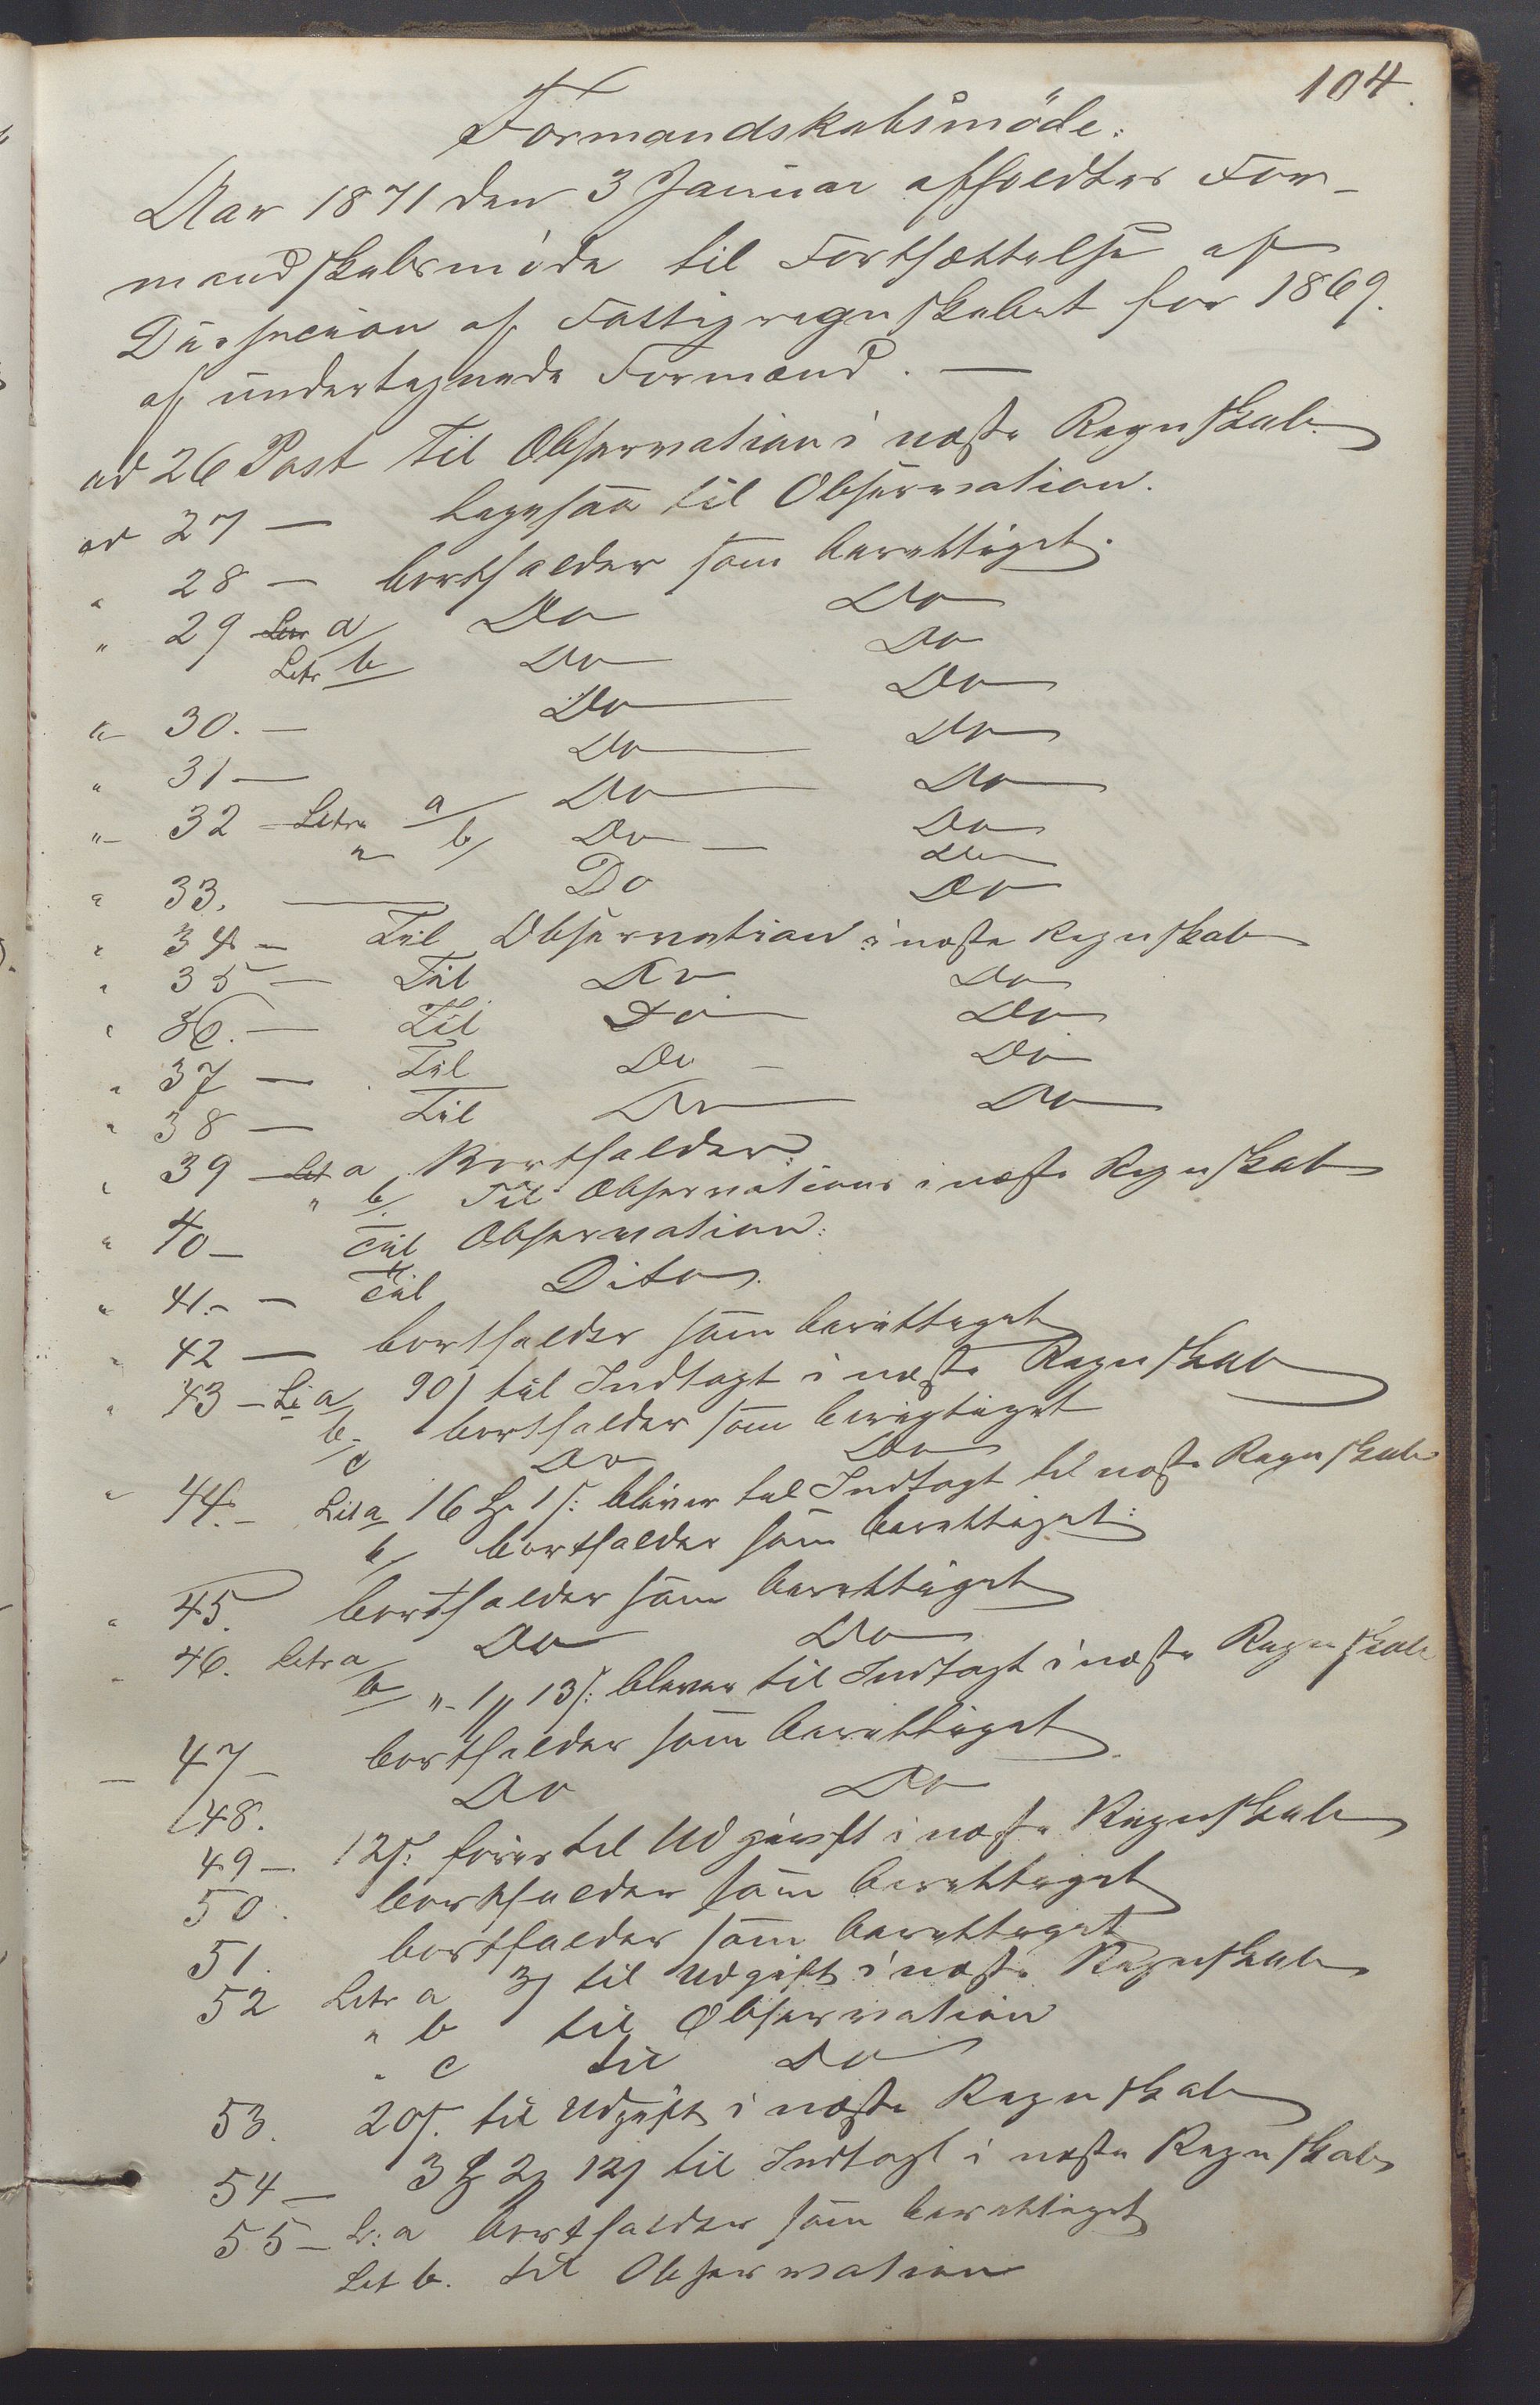 104.
Formandskabsmöde:
Aar 1871 den 3 Januar afholdtes For-
mandskabsmöde til Fortsættelse af
Dissucion af Fattigregnskabet for 1869.
af undertegnede Formænd. —
ad 26 Post til Observation i næste Regnskab
ad 27 — ligesaa til Observation.
" 28 — bortfalder som berettiget.
" 29 a/ Do Do
Litr b Do Do
" 30. — Do Do
" 31 — Do Do
" 32 — Litra a/ Do Do
" b/ Do — Do
" 33. — Do Do
" 34 — Til Observation i næste Regnskab
" 35 — Til Do Do
" 36. — Til Do Do
" 37 — Til Do — Do
" 38 — Til Do Do
" 39 — Lit a Bortfalder:
" b/ Til Observations i næste Regnskab
" 40 — Til Observation:
" 41. — Til Dito.
" 42 — bortfalder som berettiget
" 43 — Li a/ 90 s til Indtægt i næste Regnskab
b. bortfalder som berigtiget
c Do Do
" 44. — Lit a 16 1 s: bliver til Indtægt til næste Regnskab
b/ bortfalder som berettiget:
" 45. bortfalder som berettiget
" 46. Litr a Do Do
b " 1 13 s: bliver til Indtægt i næste Regnskab
— 47 — bortfalder som berettiget.
48. Do Do
49 — 12 s: föres til Udgivft i næste Regnskab
50. bortfalder som berettiget
51. bortfalder som berettiget
52 Litr a 3 s til Udgift i næste Regnskab
" b til Observation
" c til Do
53. 20 s. til Udgift i næste Regnskab
54 — 3 2 12 s til Indtægt i næste Regnskab
55 — L: a bortfalder som berettiget
Lit b. til Observation